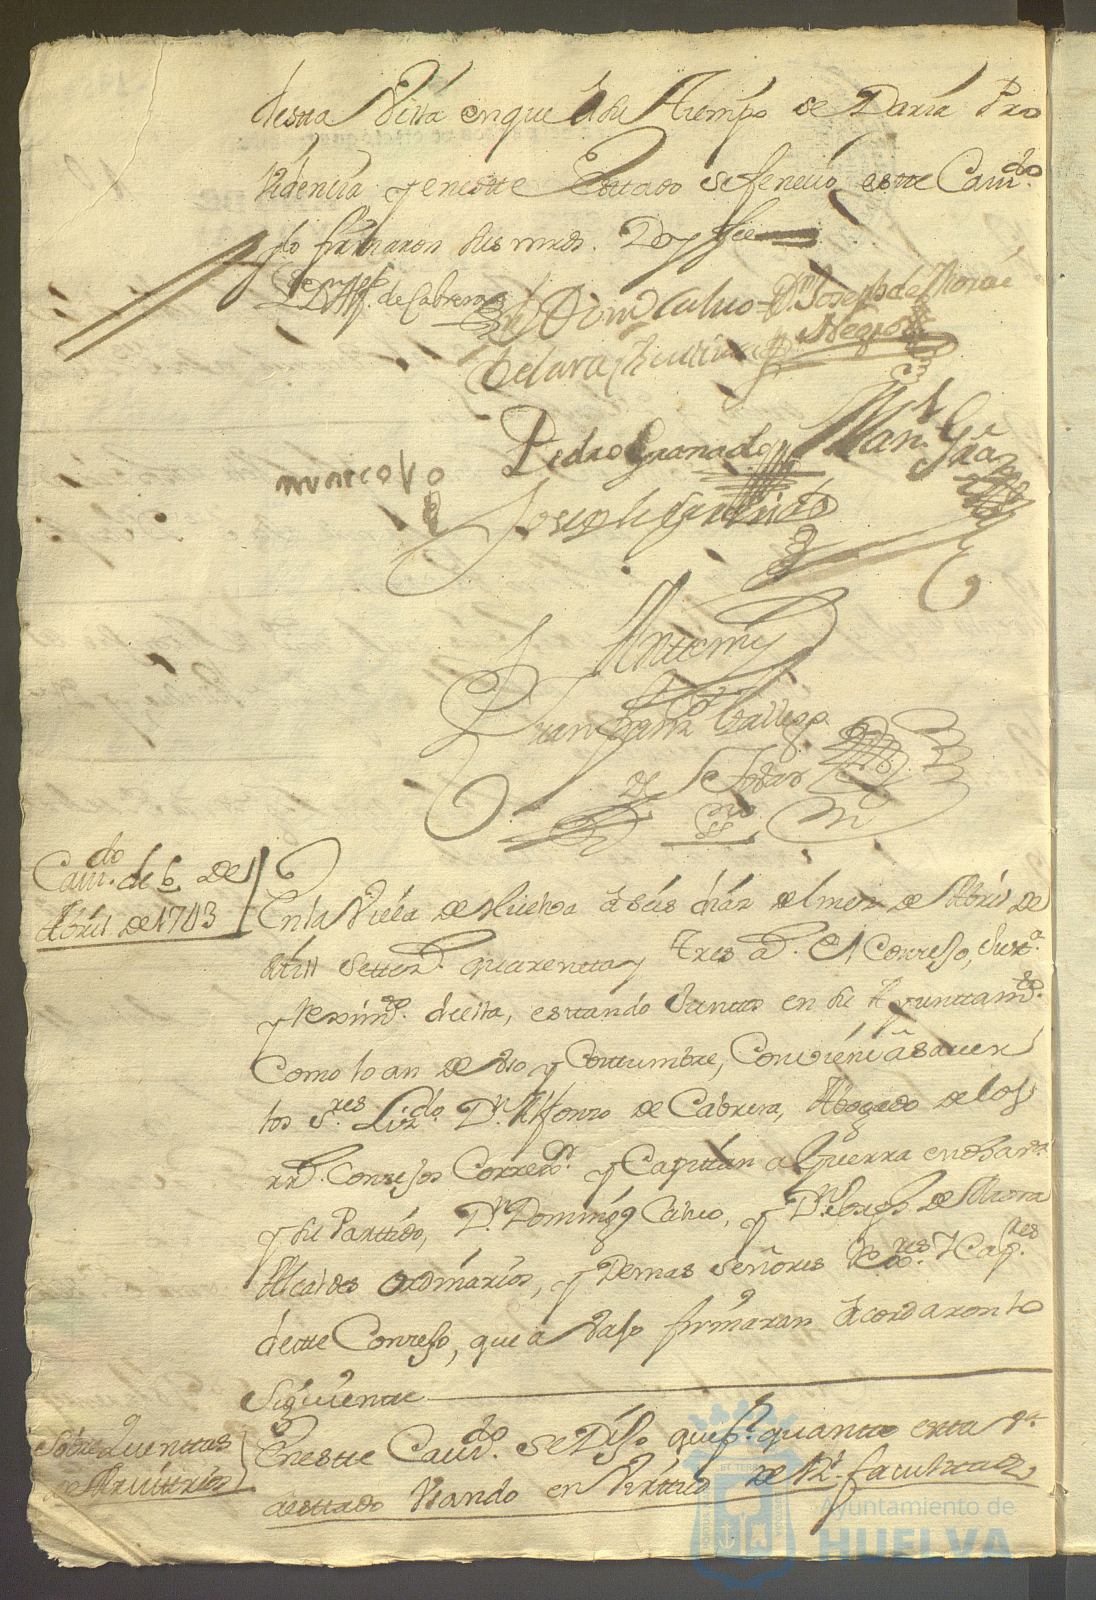 desta Villa en que a su Tiempo se Daría Pro
videncia y en este Estado se feneció este Cavdo.
y lo firmaron sus mrds. Doy fee
Lizdo. Dn. Alf. de Cabrera
Dn. Domo. Calvo Dn. Joseph de Mora
de Lara
Negro
Pedro Granado Man. Gra
marcoso
Joseph
Antemy
Juan Gallego
de Tobar
Cavdo. de 6 de
Abril de 1743
En la Villa de Huelva a seis días del mes de Abril de
mill setters. quarenta y Tres as. El Consejo, Justa.
y Reximdo. de ella, estando Juntos en su Ayuntamto.
Como lo an de Uso y Costumbre, Conviene a saver
los Sres. Lizdo. Dn. Alfonso de Cabrera, Abogado de los
rrs. Consejos Correxor. y Capitán a Guerra en ella
y su Partido, Dn. Domingo Calvo, y Dn. Josepho de Mora
Alcaldes ordinarios, y Demas Señores Rexres. y Capres.
deste Consejo, que a vajo firmaran Acordaron lo
Siguiente
Sobre quenttas
de Arvitrios
En este Cavdo. se Dijo que pr. quanto esta Va.
a estado Usando en Virtud de Rl. facultad
Ayuntamiento de
HUELVA